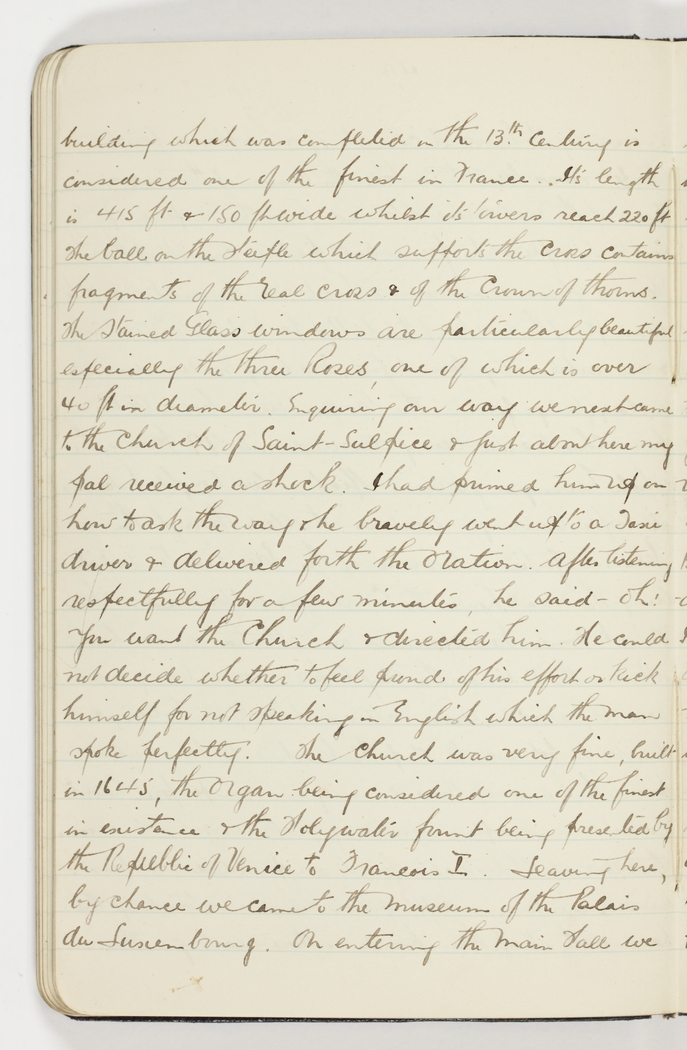 building which was completed in the 13th Century is
considered one of the finest in France. Its length
is 415 ft & 150 ft wide whilst its towers reach 220 ft
The ball on the Steeple which supports the cross contains
fragments of the real cross & of the Crown of thorns.
The Stained Glass windows are particularly beautiful
especially the three Roses, one of which is over
40 ft in diameter. Enquiring our way we next came
to the Church of Saint-Sulpice & just about here my
pal received a shock. I had primed him up on
how to ask the way & he bravely went up to a Taxi
driver & delivered forth the Oration. After listening
respectfully for a few minutes, he said - Oh!
You want the Church & directed him. He could
not decide whether to feel proud of his effort or kick
himself for not speaking in English which the man
spoke perfectly. The Church was very fine, built
in 1645, the Organ being considered one of the finest
in existance & the Holy water fount being presented by
the Republic of Venice to Francois I. Leaving here,
by chance we came to the Museum of the Palais
du Luxembourg. On entering the Main Hall we